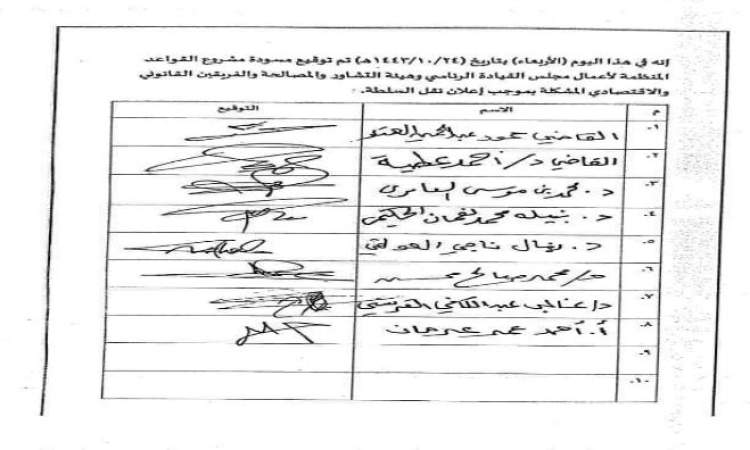 إنه في هذا اليوم (الأربعاء) بتاريخ (١٤٤٣/١٠/٢٤هـ) تم توقيع مسودة مشروع القواعد
المنظمة لأعمال مجلس القيادة الرئاسي وهيئة التشاور والمصالحة والفريقين القانوني
والاقتصادي المشكلة بموجب إعلان نقل السلطة.
م الاسم التوقيع
١. القاضي حمود عبدالحميد الهتار
٢. القاضي د/ أحمد عطية
٣. د. محمد بن موسى العامري
٤. د. نبيله محمد نعمان الحكيمي
٥. د. ناجي
٦. د/ محمد صالح محسن
٧. د/
٨. أ. أحمد عمر عرمان
٩.
١٠.